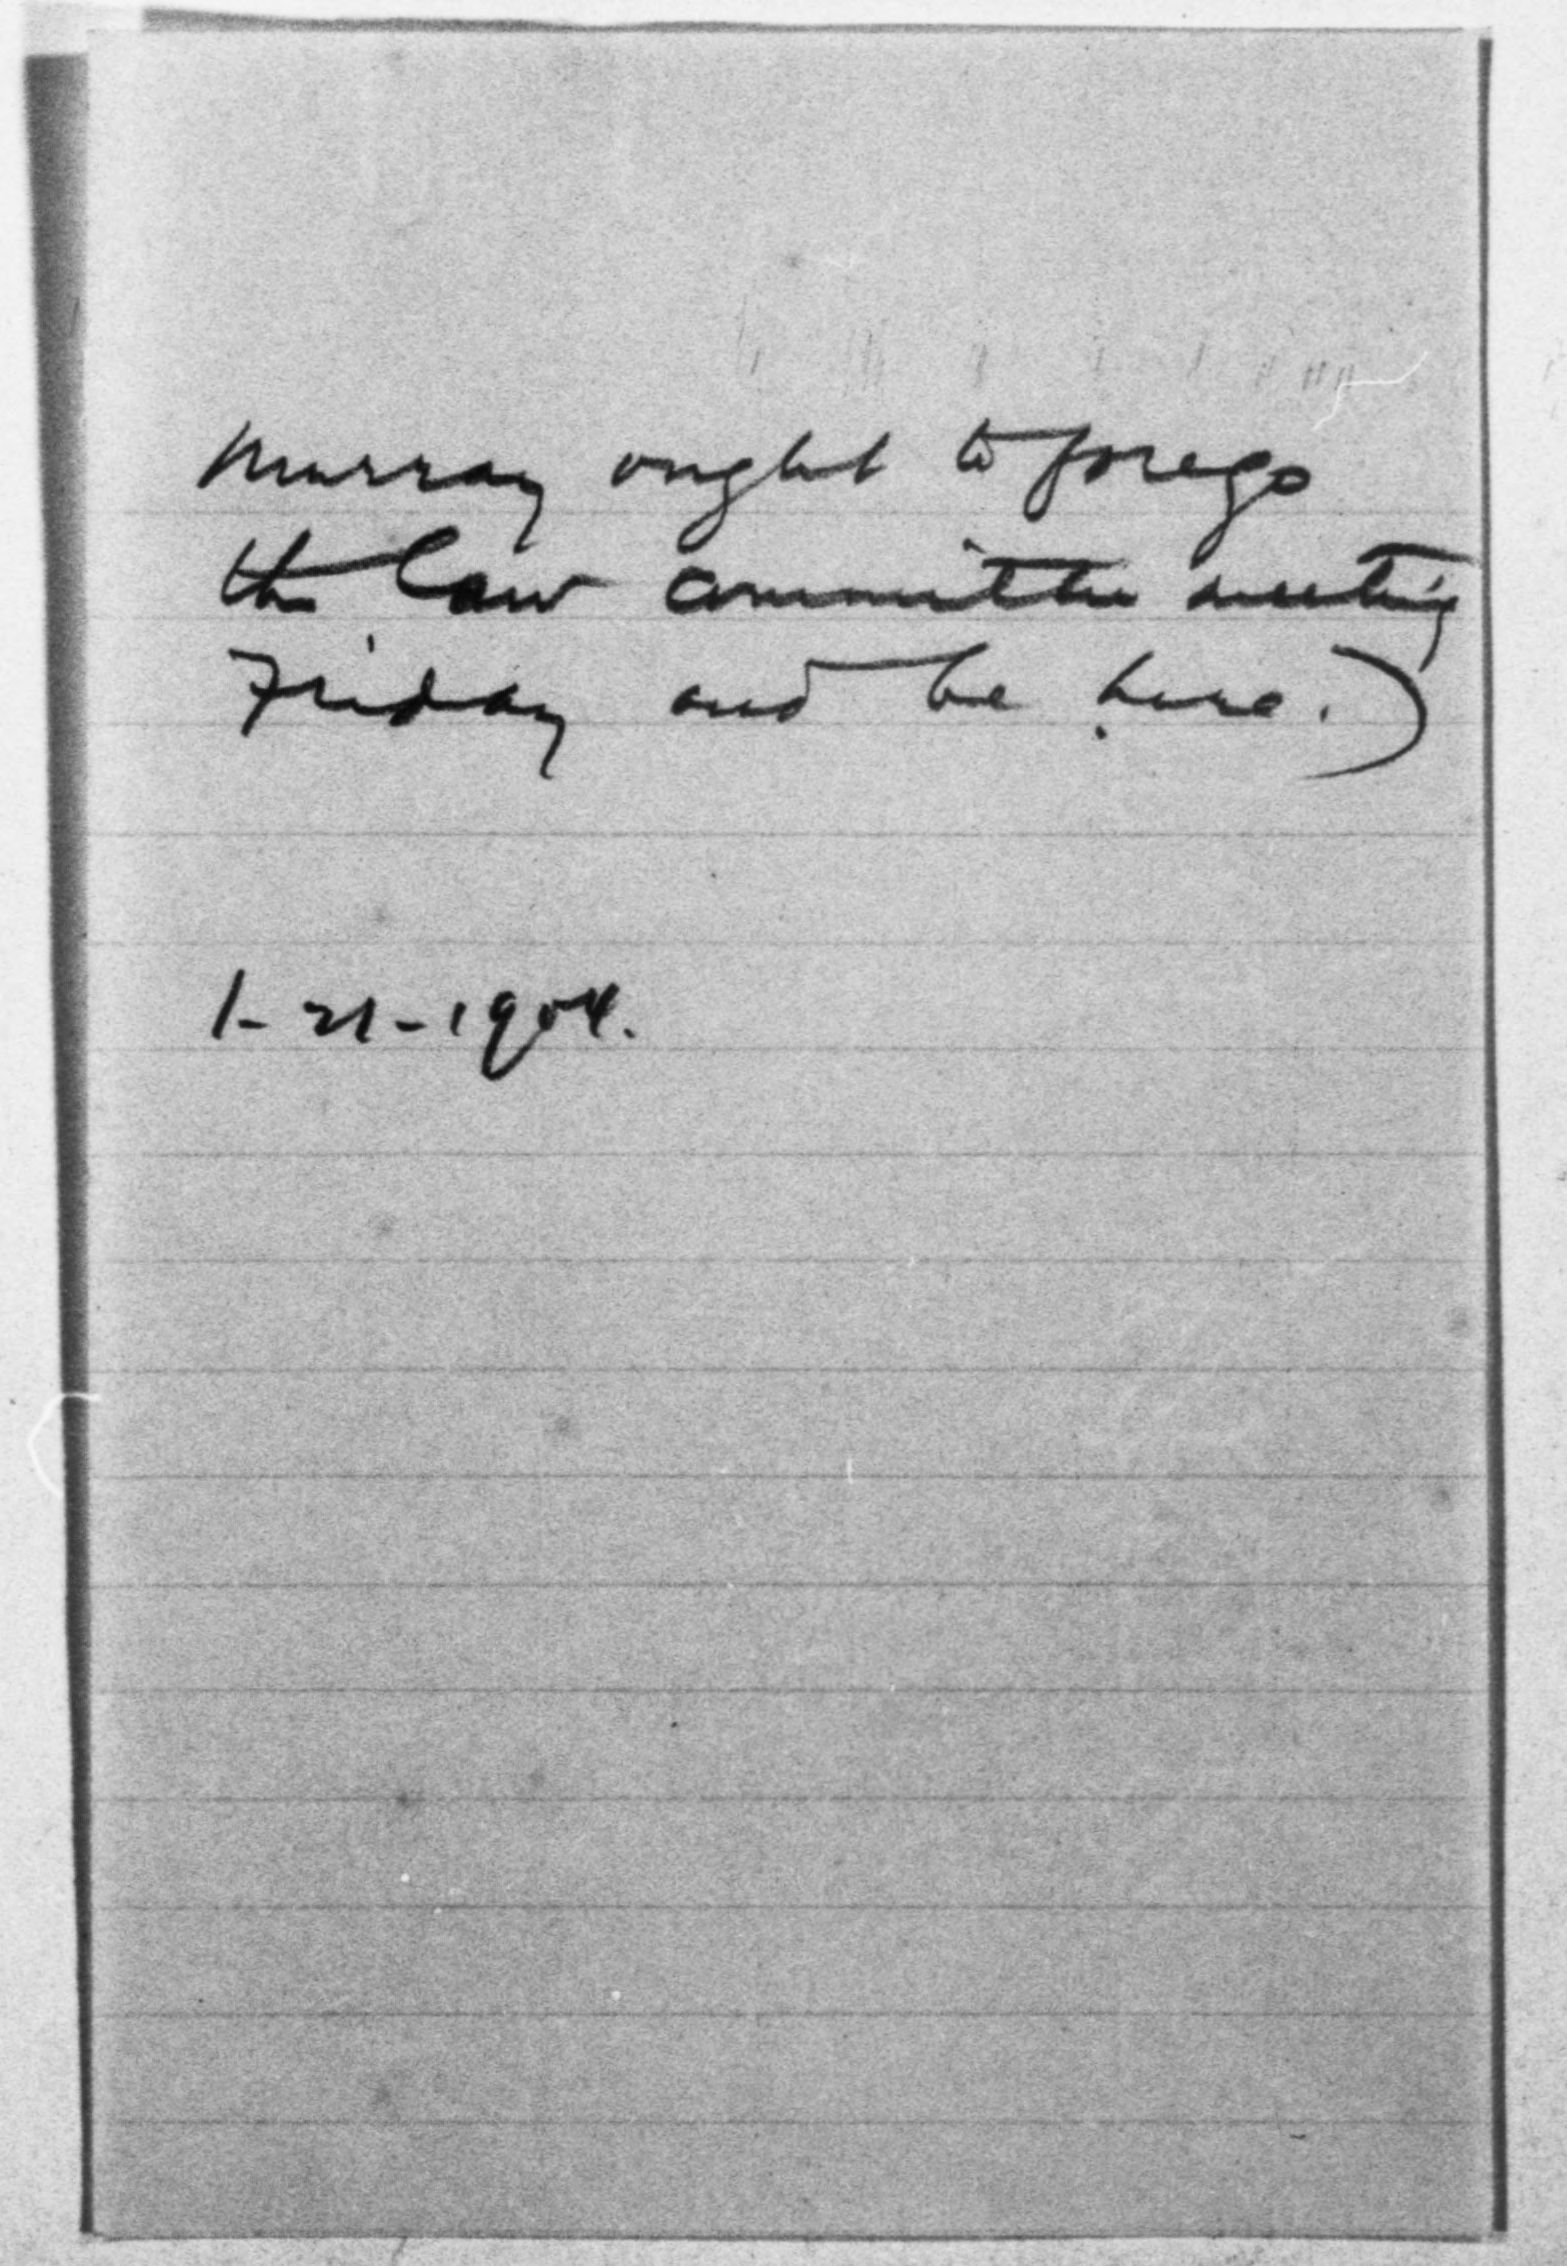 Murray ought to forego
the law committee meeting
Friday and be here.)
1-21-1904.